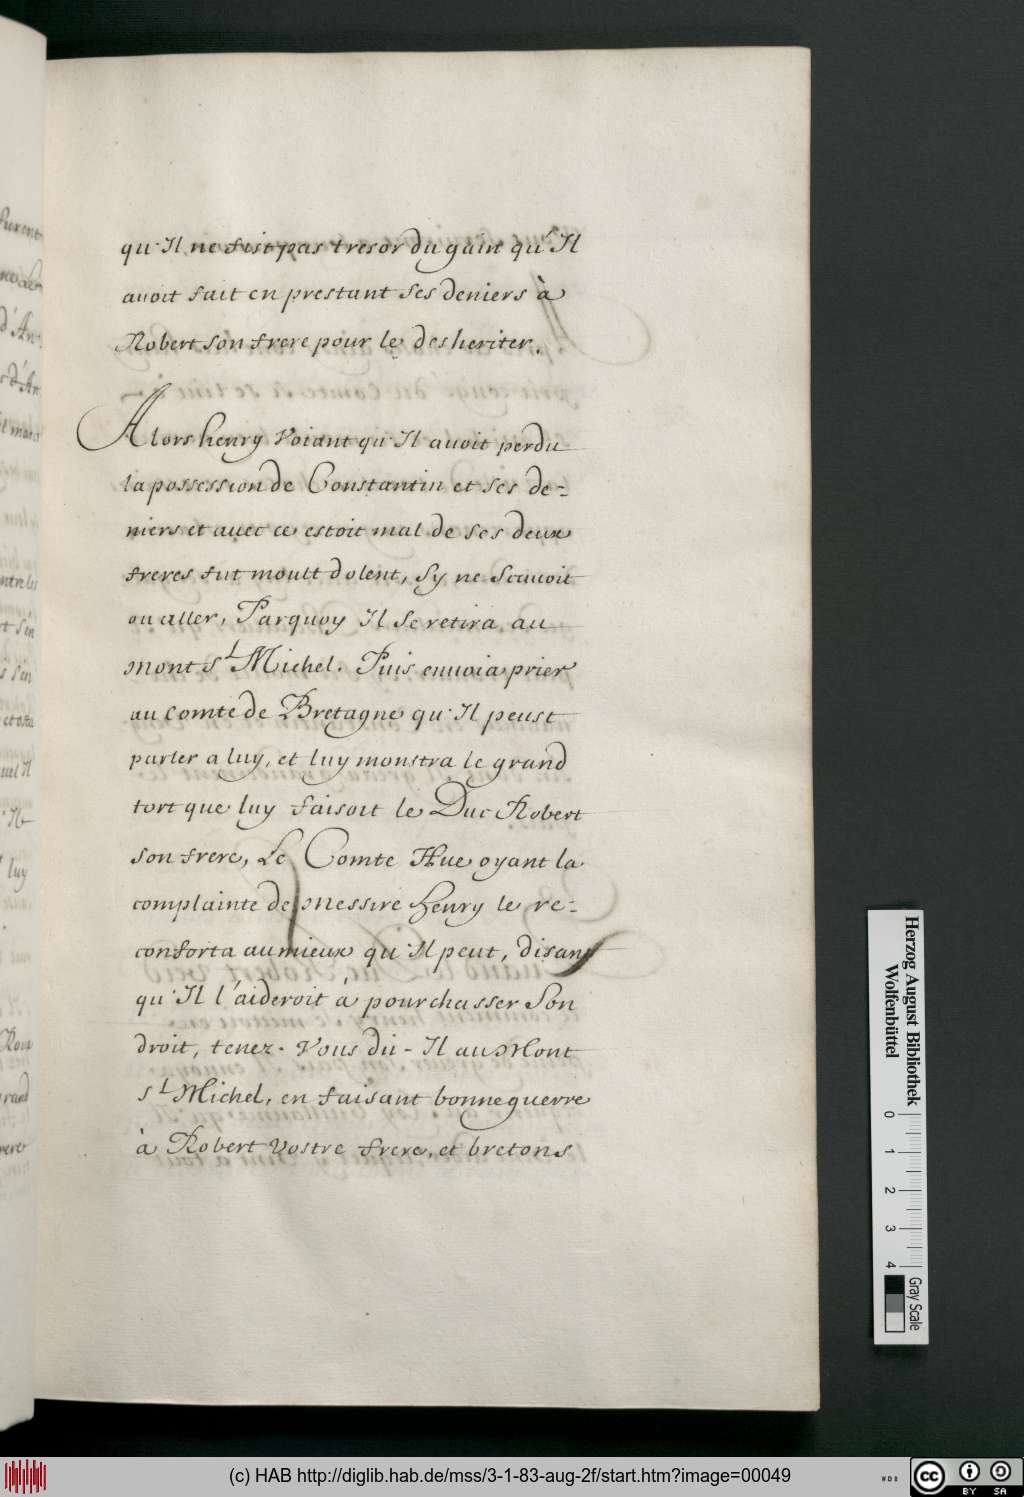 qu'Il ne fist pas tresor du gain qu'Il
avoit fait en prestant ses deniers à
Robert son frere pour le desheriter.
Alors henry voiant qu'Il avoit perdu
la possession de Constantin et ses de=
niers et avec ce estoit mal de ses deux
freres fut moult dolent, sy ne scavoit
ou aller, Parquoy Il se retira au
mont St Michel. Puis envoia prier
au comte de Bretagne qu'Il peust
parler a luy, et luy monstra le grand
tort que luy faisoit le Duc Robert
son frere, Le Comte Hue oyant la
complainte de messire henry le re=
conforta au mieux qu'Il peut, disant
qu'Il l'aideroit à pourchasser son
droit, tenez - vous dit - Il au Mont
St Michel, en faisant bonne guerre
à Robert vostre frere, et bretons
Herzog August Bibliothek
Wolfenbüttel
0 1 2 3 4
Gray Scale
(c) HAB http://diglib.hab.de/mss/3-1-83-aug-2f/start.htm?image=00049
cc BY SA